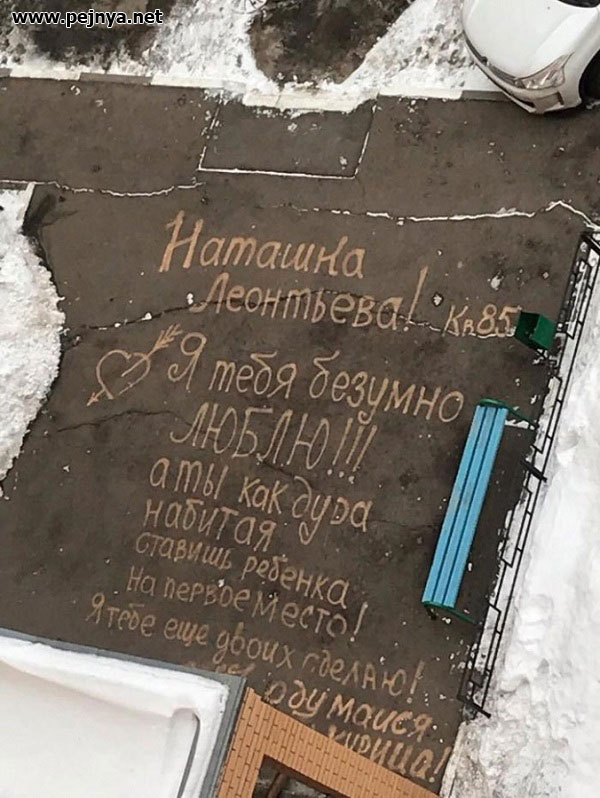 www.pejnya.net
Наташка
Леонтьева! Кв85
Я тебя безумно
ЛЮБЛЮ!!!
а ты как дура
набитая
ставишь ребенка
на первое место!
Я тебе еще двоих сделаю!
одумайся
курица!